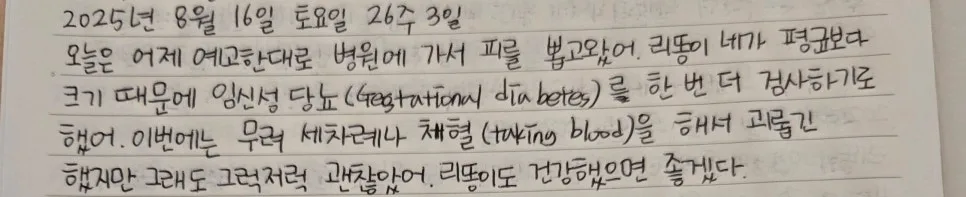 2025년 8월 16일 토요일 26주 3일
오늘은 어제 예고한대로 병원에 가서 피를 뽑고왔어. 리똥이 네가 평균보다
크기 때문에 임신성 당뇨(Gestational diabetes)를 한 번 더 검사하기로
했어. 이번에는 무려 세차례나 채혈(taking blood)을 해서 괴롭긴
했지만 그래도 그럭저럭 괜찮았어. 리똥이도 건강했으면 좋겠다.